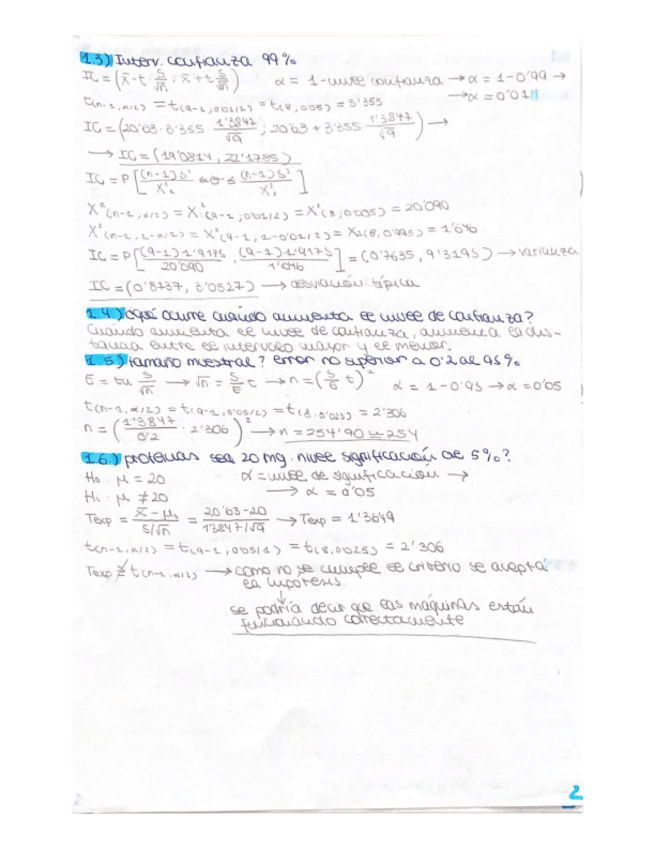 1.3) Interv. confianza 99%
IC = (x̄ - t S/√n ; x̄ + t S/√n) α = 1 - nivel confianza → α = 1 - 0'99 →
→ α = 0'01
t(n-1, α/2) = t(9-1, 0'01/2) = t(8, 0'005) = 3'355
IC = (20'63 - 3'355 1'3847/√9 ; 20'63 + 3'355 1'3847/√9) →
→ IC = (19'0814, 22'1785)
IC = P[(n-1)S²/X²₂ ≤ σ ≤ (n-1)S²/X²₁]
X²(n-1, α/2) = X²(9-1; 0'01/2) = X²(8; 0'005) = 20'090
X²(n-1, 1-α/2) = X²(9-1, 1-0'01/2) = X²(8, 0'995) = 1'646
IC = P[(9-1)1'9175/20'090 , (9-1)1'9175/1'646] = (0'7635, 9'3195) → varianza
IC = (0'8737, 3'0527) → desviación típica
1.4) ¿qué ocurre cuándo aumenta el nivel de confianza?
Cuándo aumenta el nivel de confianza, aumenta la dis-
tancia entre el intervalo mayor y el menor.
1.5) ¿tamaño muestral? error no superior a 0'2 al 95%
E = tu S/√n → √n = S/E t → n = (S/E t)² α = 1 - 0'95 → α = 0'05
t(n-1, α/2) = t(9-1, 0'05/2) = t(8, 0'025) = 2'306
n = (1'3847/0'2 · 2'306)² → n = 254'90 ≃ 254
1.6) proteínas sea 20 mg. nivel significación de 5%?
H₀: μ = 20 α = nivel de significación →
H₁: μ ≠ 20 → α = 0'05
Texp = x̄ - μ₀/S/√n = 20'63-20/1'3847/√9 → Texp = 1'3649
t(n-1, α/2) = t(9-1, 0'05/2) = t(8, 0'025) = 2'306
Texp ≱ t(n-1, α/2) → como no se cumple el criterio se acepta
la hipótesis.
↓
se podría decir que las máquinas están
funcionando correctamente
2